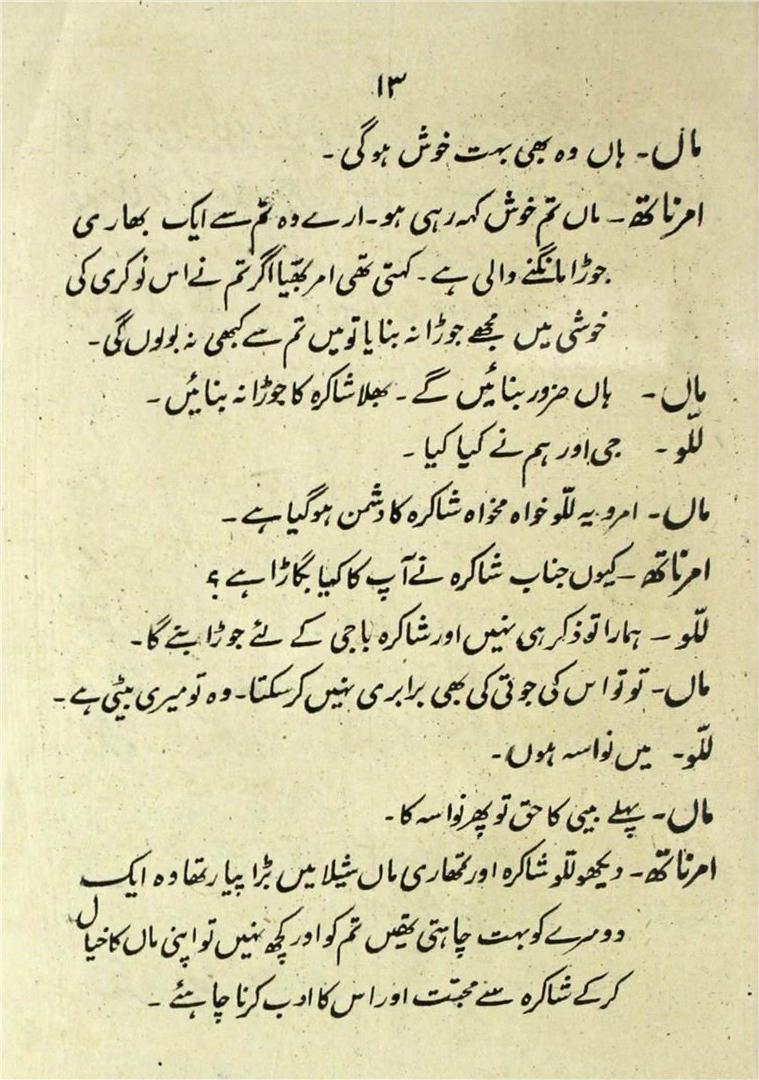 ۱۳
ماں۔ ہاں وہ بھی بہت خوش ہوگی۔
امرناتھ۔ ماں تم خوش کہہ رہی ہو۔ ارے وہ تم سے ایک بھاری
جوڑا مانگنے والی ہے۔ کہتی تھی امر بھیّا اگر تم نے اس نوکری کی
خوشی میں مجھے جوڑا نہ بنایا تو میں تم سے کبھی نہ بولوں گی۔
ماں۔ ہاں ضرور بنائیں گے۔ بھلا شاکرہ کا جوڑا نہ بنائیں۔
للّو۔ جی اور ہم نے کیا کیا۔
ماں۔ امرو یہ للّو خواہ مخواہ شاکرہ کا دشمن ہوگیا ہے۔
امرناتھ۔ کیوں جناب شاکرہ نے آپ کا کیا بگاڑا ہے ؟
للّو۔ ہمارا تو ذکر ہی نہیں اور شاکرہ باجی کے لئے جوڑا بنے گا۔
ماں۔ تو تو اس کی جوتی کی بھی برابری نہیں کرسکتا۔ وہ تو میری بیٹی ہے۔
للّو۔ میں نواسہ ہوں۔
ماں۔ پہلے بیٹی کا حق تو پھر نواسہ کا۔
امرناتھ۔ دیکھو للّو شاکرہ اور تمھاری ماں شیلا میں بڑا پیار تھا وہ ایک
دوسرے کو بہت چاہتی تھیں تم کو اور کچھ نہیں تو اپنی ماں کا خیال
کرکے شاکرہ سے محبّت اور اس کا ادب کرنا چاہئے۔